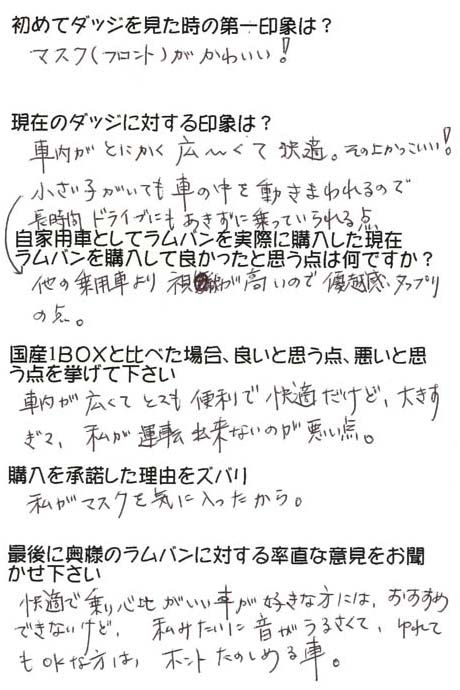 初めてダッジを見た時の第一印象は？
マスク(フロント)がかわいい！
現在のダッジに対する印象は？
車内がとにかく広〜くて快適。その上かっこいい！
小さい子がいても車の中を動きまわれるので
長時間ドライブにもあきずに乗っていられる点
自家用車としてラムバンを実際に購入した現在
ラムバンを購入して良かったと思う点は何ですか？
他の乗用車より視線が高いので優越感タップリ
の点。
国産1BOXと比べた場合、良いと思う点、悪いと思
う点を挙げて下さい
車内が広くてとても便利で快適だけど、大きす
ぎて、私が運転出来ないのが悪い点。
購入を承諾した理由をズバリ
私がマスクを気に入ったから。
最後に奥様のラムバンに対する率直な意見をお聞
かせ下さい
快適で乗り心地がいい車が好きな方には、おすすめ
できないけど、私みたいに音がうるさくて、ゆれて
もOKな方は、ホントたのしめる車。